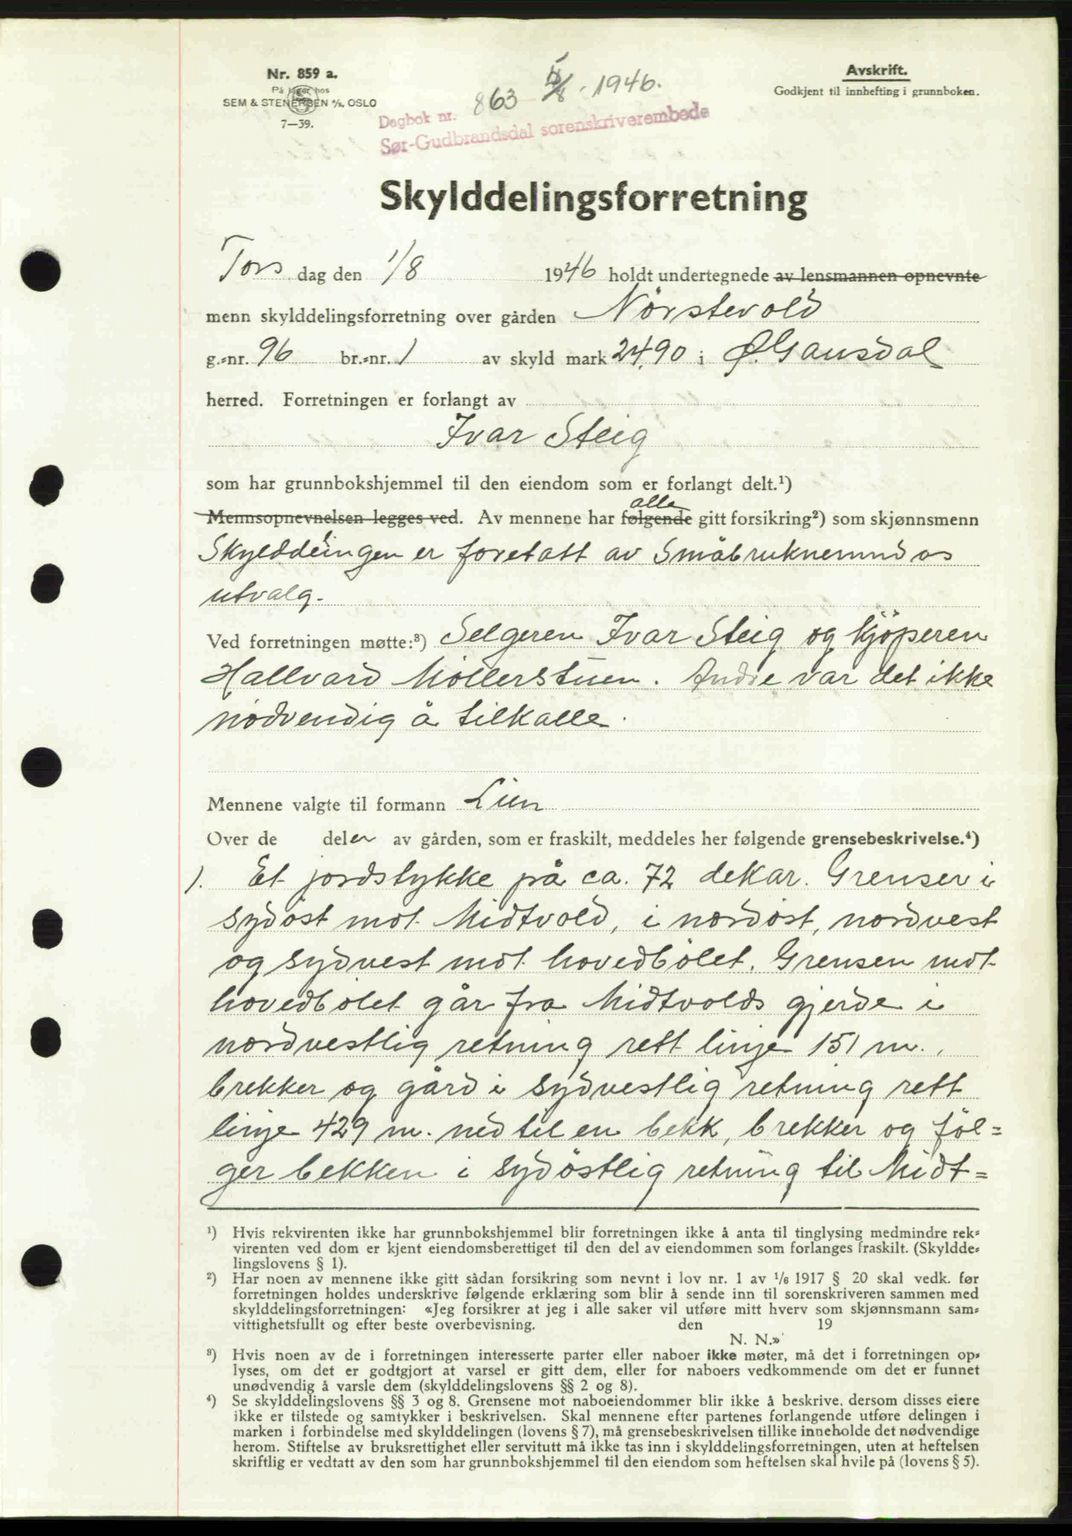 Nr. 859 a.
På lager hos
SEM & STENERSEN A/S. OSLO
7—39.
Avskrift.
Godkjent til innhefting i grunnboken.
Dagbok nr. 863 5/8. 1946.
Sør-Gudbrandsdal sorenskriverembede
Skylddelingsforretning
Tors dag den 1/8 1946 holdt undertegnede av lensmannen opnevnte
menn skylddelingsforretning over gården Nørstevold
g.-nr. 96 br.-nr. 1 av skyld mark 24,90 i Ø. Gausdal
herred. Forretningen er forlangt av
Ivar Steig
som har grunnbokshjemmel til den eiendom som er forlangt delt.¹)
alle
Mennsopnevnelsen legges ved. Av mennene har følgende gitt forsikring²) som skjønnsmenn
Skylddelingen er foretatt av Småbruknemndas
utvalg.
Ved forretningen møtte:³) Selgeren Ivar Steig og kjöperen
Hallvard Möllerstuen. Andre var det ikke
nödvendig å tilkalle.
Mennene valgte til formann Lien
Over de deler av gården, som er fraskilt, meddeles her følgende grensebeskrivelse.⁴)
1. Et jordstykke på ca. 72 dekar. Grenser i
sydöst mot Midtvold, i nordöst, nordvest
og sydvest mot hovedbölet. Grensen mot
hovedbölet går fra Midtvolds gjerde i
nordvestlig retning rett linje 151 m.,
brekker og gård i sydvestlig retning rett
linje 429 m. ned til en bekk, brekker og föl=
ger bekken i sydöstlig retning til Midt=
¹) Hvis rekvirenten ikke har grunnbokshjemmel blir forretningen ikke å anta til tinglysing medmindre rek-
virenten ved dom er kjent eiendomsberettiget til den del av eiendommen som forlanges fraskilt. (Skyldde-
lingslovens § 1).
²) Har noen av mennene ikke gitt sådan forsikring som nevnt i lov nr. 1 av 1/6 1917 § 20 skal vedk. før
forretningen holdes underskrive følgende erklæring som blir å sende inn til sorenskriveren sammen med
skylddelingsforretningen: «Jeg forsikrer at jeg i alle saker vil utføre mitt hverv som skjønnsmann sam-
vittighetsfullt og efter beste overbevisning. den 19
N. N.»
³) Hvis noen av de i forretningen interesserte parter eller naboer ikke møter, må det i forretningen op-
lyses, om det er godtgjort at varsel er gitt dem, eller for naboers vedkommende om det er funnet
unødvendig å varsle dem (skylddelingslovens §§ 2 og 8).
⁴) Se skylddelingslovens §§ 3 og 8. Grensene mot naboeiendommer blir ikke å beskrive, dersom disses eiere
ikke er tilstede og samtykker i beskrivelsen. Skal mennene efter partenes forlangende utføre delingen i
marken i forbindelse med skylddelingen (lovens § 7), må grensebeskrivelsen tillike inneholde det nødvendige
herom. Stiftelse av bruksrettighet eller servitutt må ikke tas inn i skylddelingsforretningen, uten at heftelsen
skriftlig er vedtatt av den som har grunnbokshjemmel til den eiendom som heftelsen skal hvile på (lovens § 5).